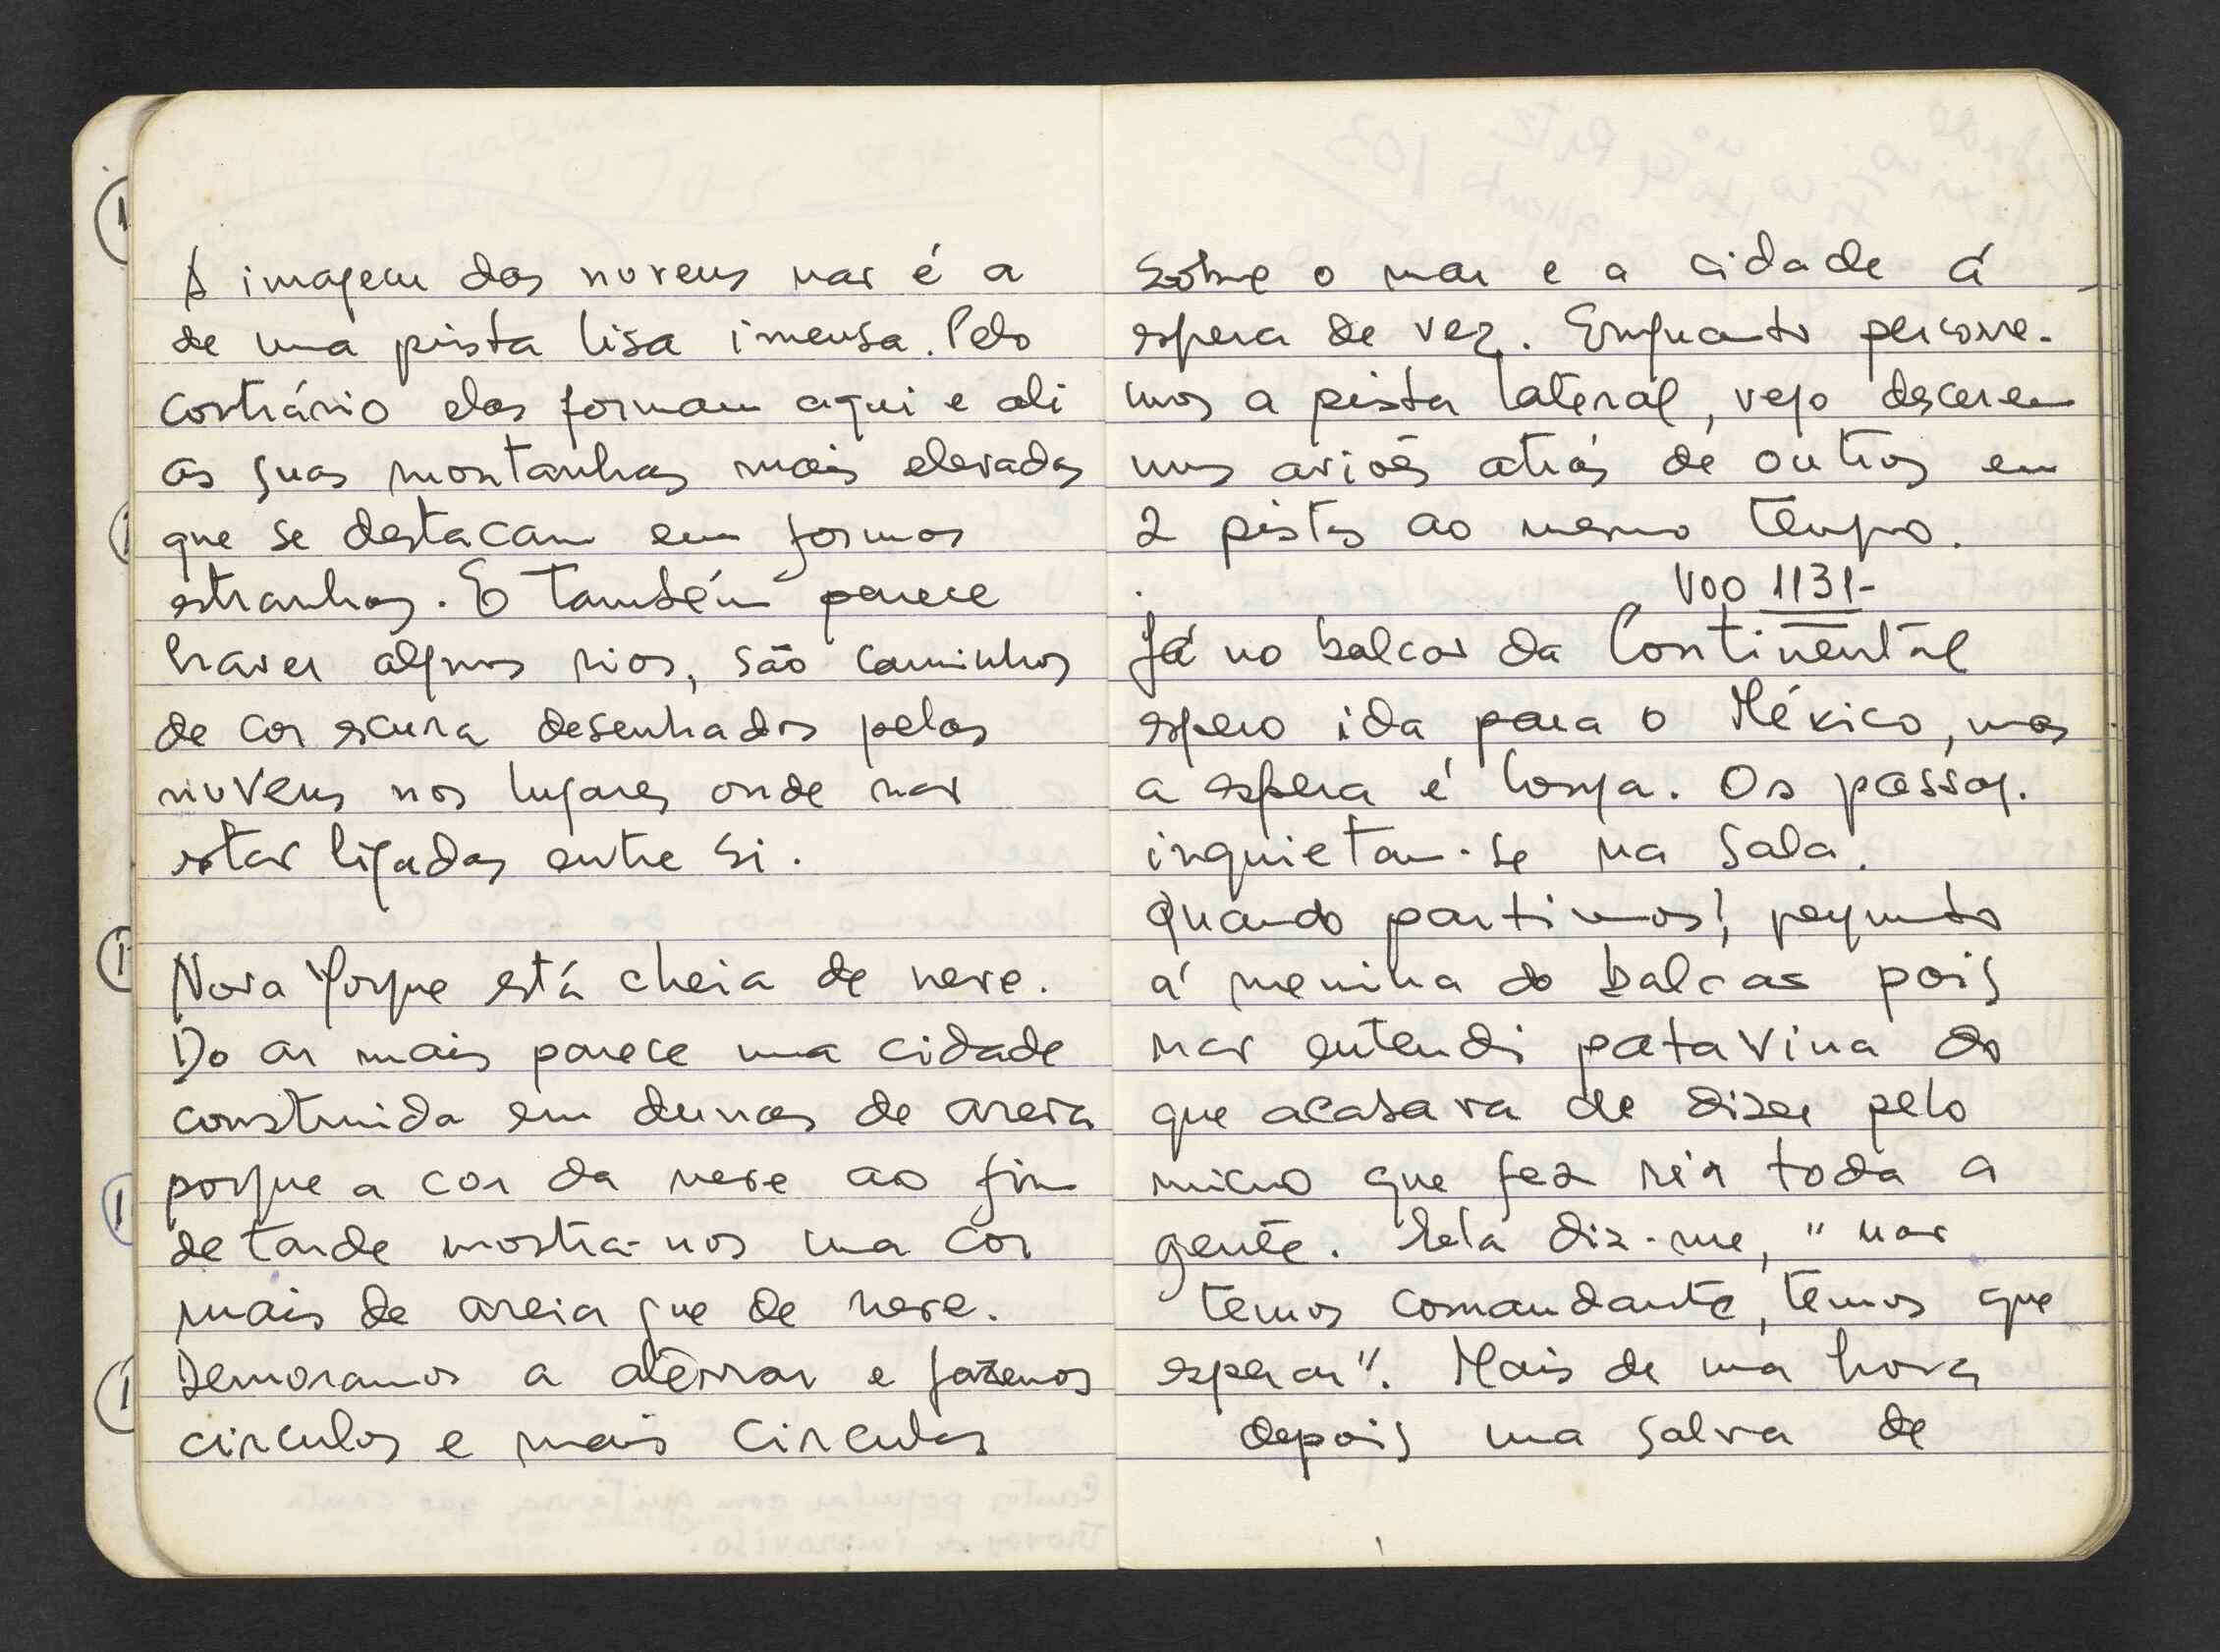 A imagem das nuvens não é a
de uma pista lisa imensa. Pelo
contrário elas formam aqui e ali
as suas montanhas mais elevadas
que se destacam em formas
estranhas. E também parece
haver alguns rios, são caminhos
de cor escura desenhados pelas
nuvens nos lugares onde não
estão ligadas entre si.
Nova Yorque está cheia de neve.
Do ar mais parece uma cidade
construida em dunas de areia
porque a cor da neve ao fim
de tarde mostra-nos uma cor
mais de areia que de neve.
Demoramos a aterrar e fazemos
circulos e mais circulos
sobre o mar e a cidade á
espera de vez. Enquanto percorre-
mos a pista lateral, vejo descerem
uns aviões atrás de outros em
2 pistas ao mesmo tempo.
VOO 1131-
Já no balcão da Continental
espero ida para o México, mas
a espera é longa. Os passag.
inquietam-se na sala.
Quando partimos? pergunto
á menina do balcão pois
não entendi patavina do
que acabava de dizer pelo
micro que fez rir toda a
gente. Ela diz-me, "não
temos comandante, temos que
esperar". Mais de uma hora
depois uma salva de